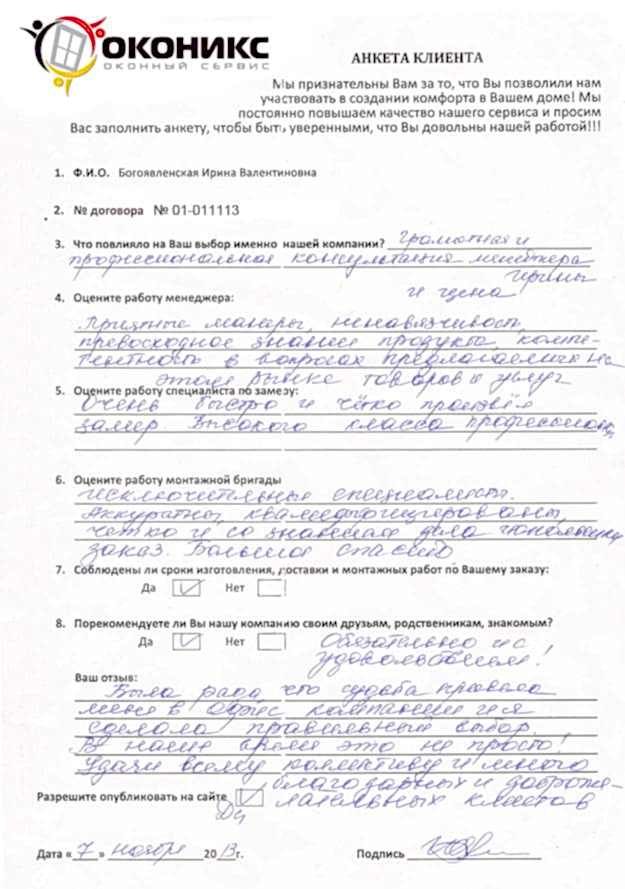 ОКОНИКС
ОКОННЫЙ СЕРВИС
АНКЕТА КЛИЕНТА
Мы признательны Вам за то, что Вы позволили нам
участвовать в создании комфорта в Вашем доме! Мы
постоянно повышаем качество нашего сервиса и просим
Вас заполнить анкету, чтобы быть уверенными, что Вы довольны нашей работой!!!
1. Ф.И.О. Богоявленская Ирина Валентиновна
2. № договора № 01-011113
3. Что повлияло на Ваш выбор именно нашей компании? Грамотная и
профессиональная консультация менеджера
Ирины
и цена!
4. Оцените работу менеджера:
Приятные манеры, ненавязчивость,
превосходное знание продукта, компе-
тентность в вопросах предлагаемых на
этом рынке товаров и услуг
5. Оцените работу специалиста по замезу:
Очень быстро и чётко произвёл
замер. Высокого класса профессионал
6. Оцените работу монтажной бригады
Исключительные специалисты.
Аккуратны, квалифицированы,
четко и со знанием дела
заказ. Большое спасибо
7. Соблюдены ли сроки изготовления, доставки и монтажных работ по Вашему заказу:
Да Нет
8. Порекомендуете ли Вы нашу компанию своим друзьям, родственникам, знакомым?
Да Нет Обязательно и с
удовольствием!
Ваш отзыв:
Была рада что судьба привела
меня в офис компании и я
сделала правильный выбор.
В наше время это не просто!
Удачи всему коллективу и много
благодарных и доброже-
Разрешите опубликовать на сайте лательных клиентов
Да
Дата « 7 » ноября 2013г. Подпись